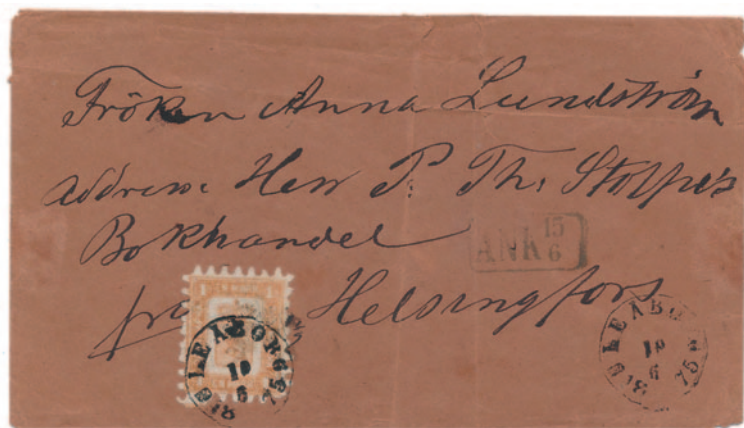 Fröken Anna Lundström
address: Herr P. Th. Stolpe's
Bokhandel
ANK 15/6
Helsingfors
ULEABORG
10
6
1875
ULEABORG
10
6
1875